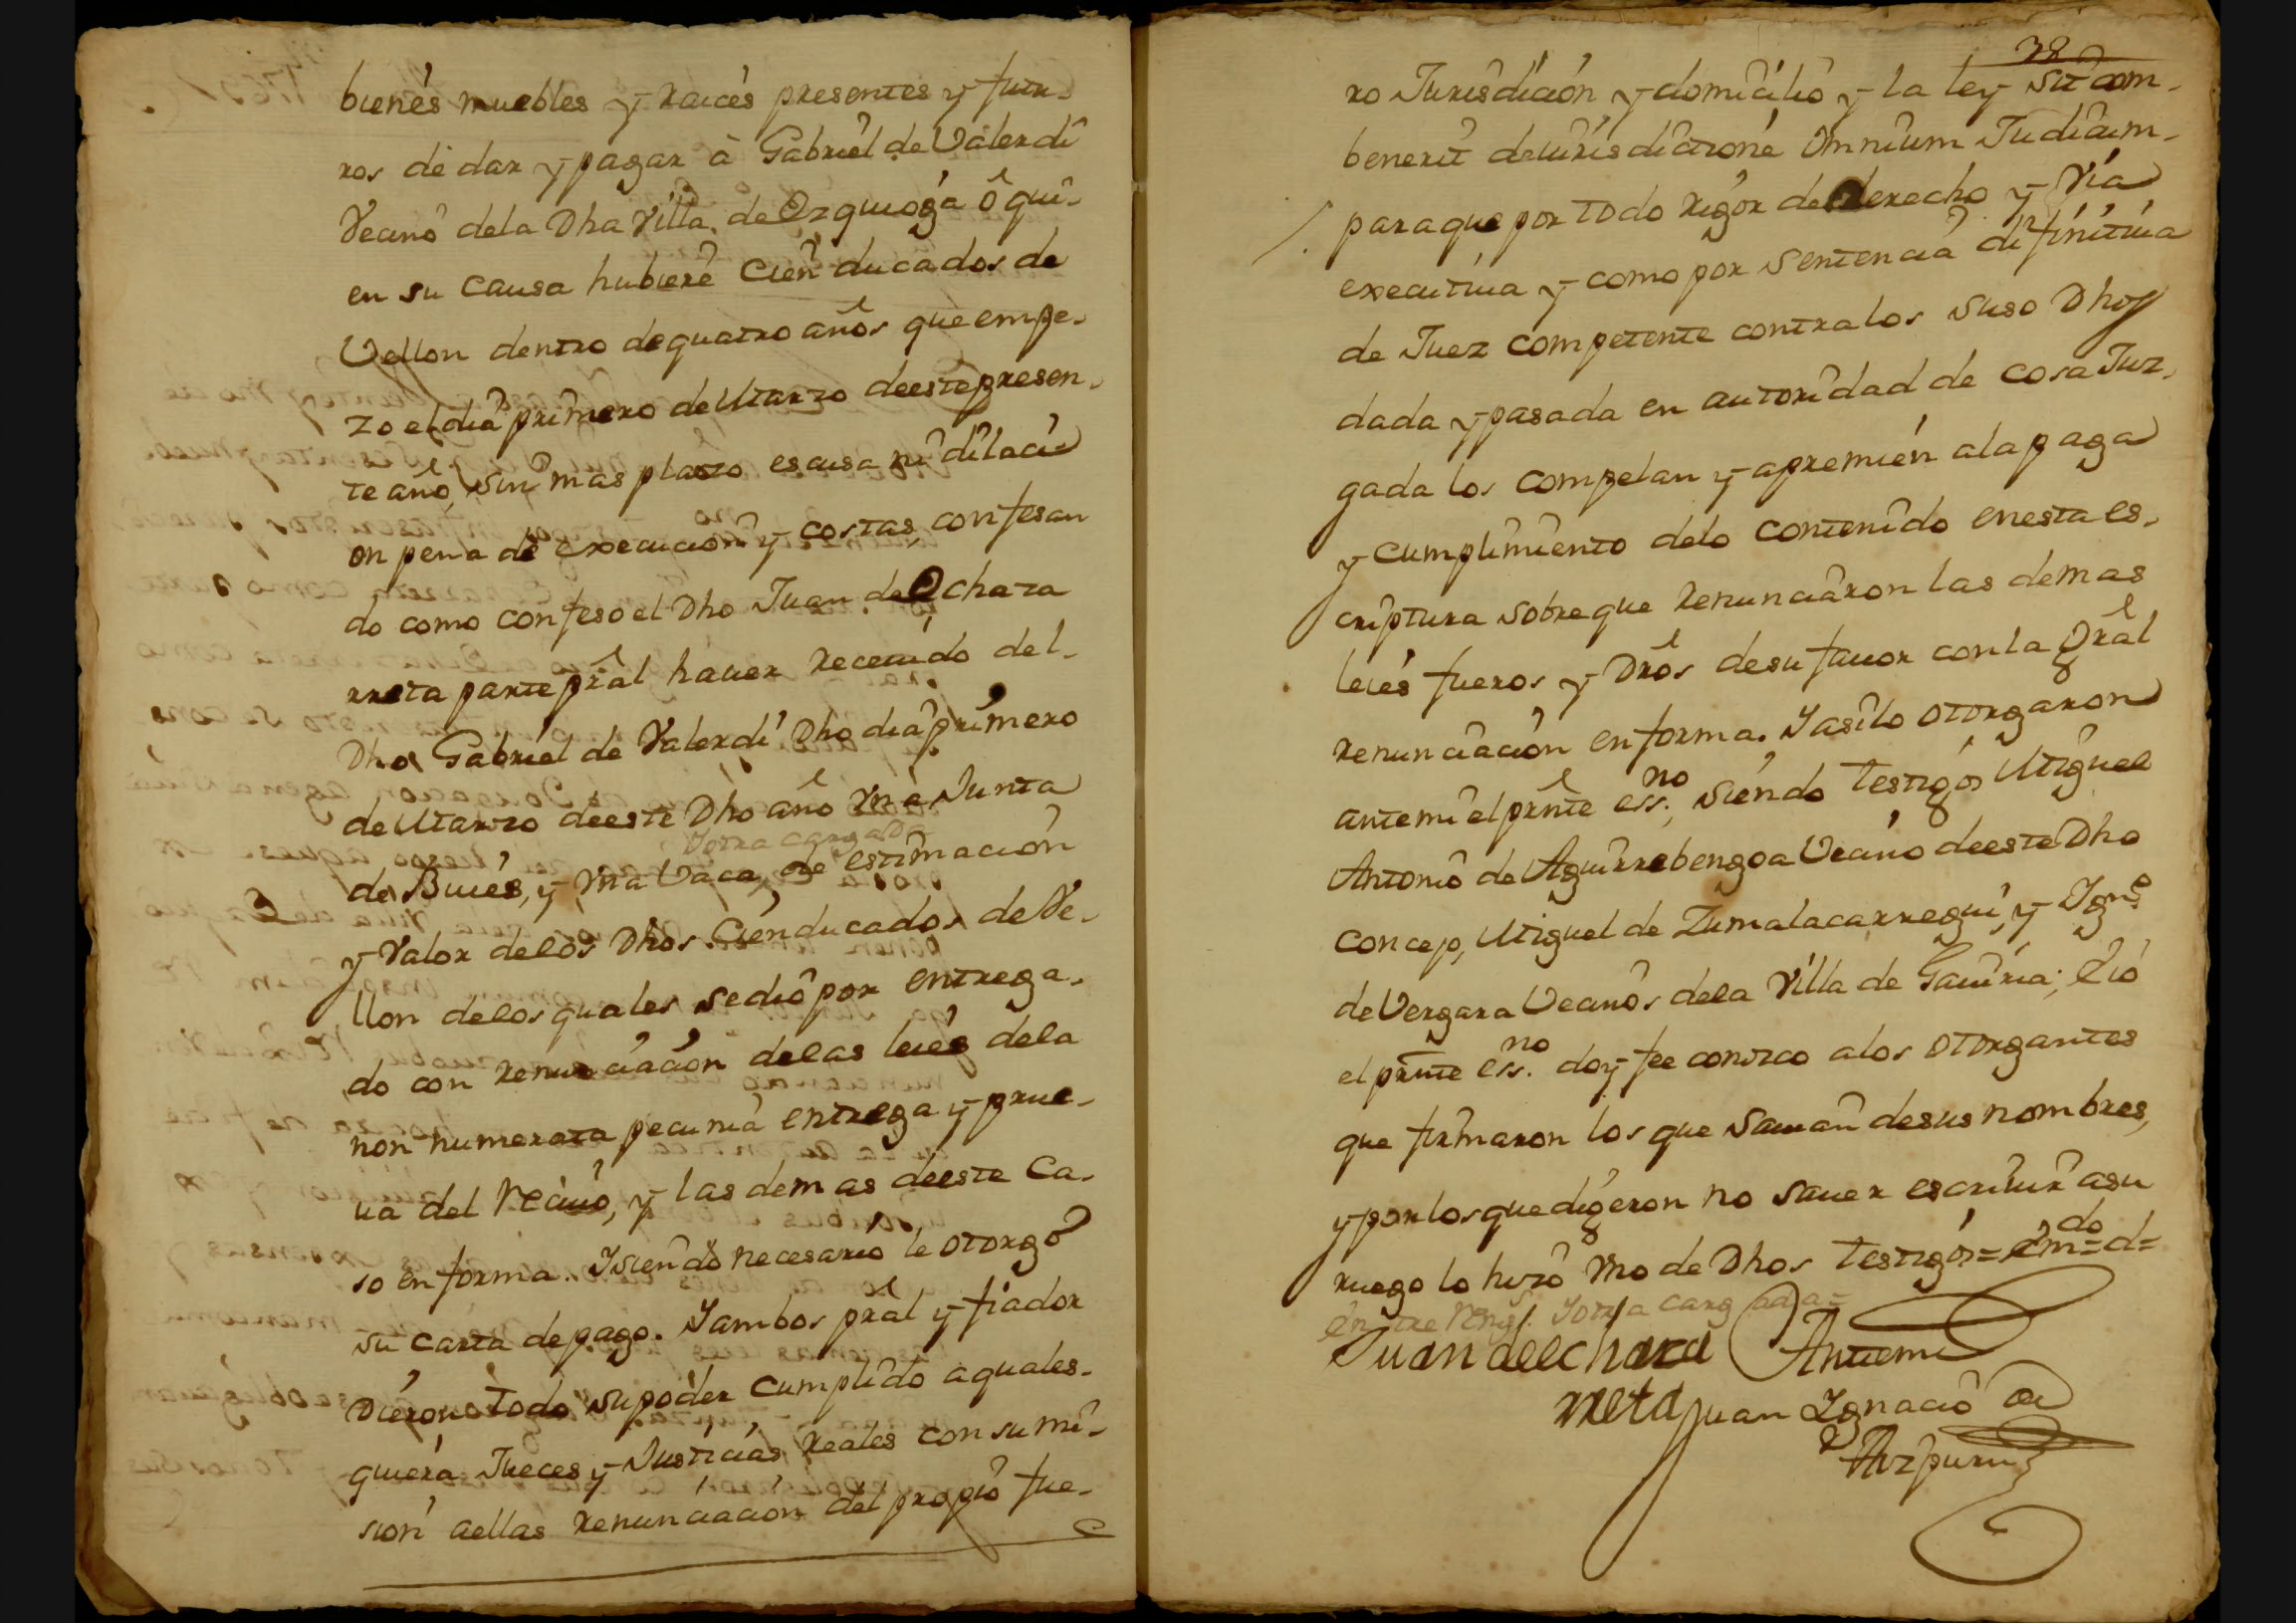 bienes muebles y raices presentes y futu-
ros de dar y pagar à Gabriel de Valerdi
Vecino dela Dha Villa de Ezquioga ô qui-
en su causa hubiere Cien ducados de
Vellon dentro de quatro años que empe-
zo el dia primero de Marzo deeste presen-
te año, sin mas plazo escusa ni dilaci-
on pena de execucion y costas, confesan
do como confeso el Dho Juan de Echaza
rreta parte prâl hauer receuido del
Dho Gabriel de Valerdi Dho dia primero
de Marzo deeste Dho año Vna Junta
Yotra cargada
de Buies, y Vna Vaca, de estimacion
y Valor delos Dhos Cien ducados de Ve-
llon delos quales se dio por entrega-
do con renunciacion delas leies dela
non numerata pecunia entrega y prue-
ua del reciuo, y las demas deeste Ca-
so en forma. Y siendo necesario le otorgò
su carta de pago. Y ambos prâl y fiador
Dieron todo su poder cumplido a quales-
quiera Jueces y Justicias reales con sumi-
sion aellas renunciacion del propio fue-
38
ro Jurisdicion y domicilio y la ley sit com-
benerit de iurisdictione Omnium Judicum-
para que por todo rigor de derecho y Via
executiua y como por sentencia difinitiua
de Juez competente contra los suso Dhos
dada y pasada en autoridad de cosa Juz-
gada los compelan y apremien ala paga
y cumplimiento delo contenido en esta es-
criptura sobre que renunciaron las demas
leies fueros y Drôs de su fauor con la Grâl
renunciacion en forma. Y asi lo otorgaron
ante mi el prnte ess.no, siendo testigos Miguel
Antonio de Aguirrebengoa Vecino deeste Dho
Concejo, Miguel de Zumalacarregui, y Ygn.o
de Vergara Vecinos dela Villa de Gauiria; E io
el prnte ess.no doy fee conozco alos otorgantes
que firmaron los que sauian de sus nombres,
y por los que digeron no sauer escriuir a su
ruego lo hizo Vno de Dhos testigos = em.do = d =
entre reng.s Yotra cargada =
Juan de Echaza Ante mi
rreta Juan Ignacio de
Azpuru